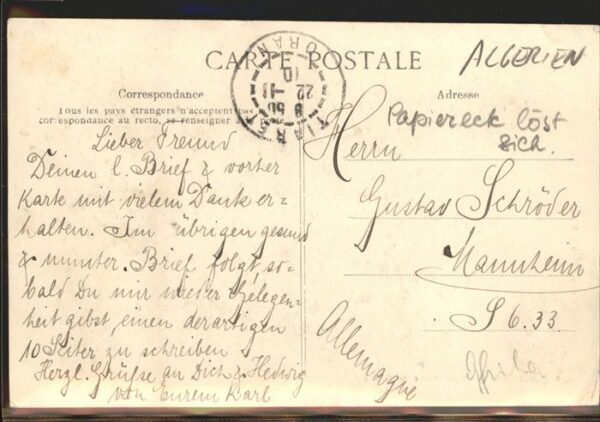 CARTE POSTALE
ALGERIEN
Correspondance
Tous les pays étrangers n'acceptent pas
correspondance au recto, se renseigner à
Adresse
TIARET
ORAN
8 50
22 -11
10
Papiereck löst
sich.
Lieber Freund
Deinen l. Brief & vorher
Karte mit vielem Dank er=
halten. Im übrigen gesund
& munter. Brief folgt, so=
bald Du mir wieder Gelegen=
heit gibst, einen derartigen
10 Seiter zu schreiben
Herzl. Grüße an Dich & Hedwig
von Eurem Karl
Herrn
Gustav Schröder
Mannheim
S 6.33
Allemagne
Afrika